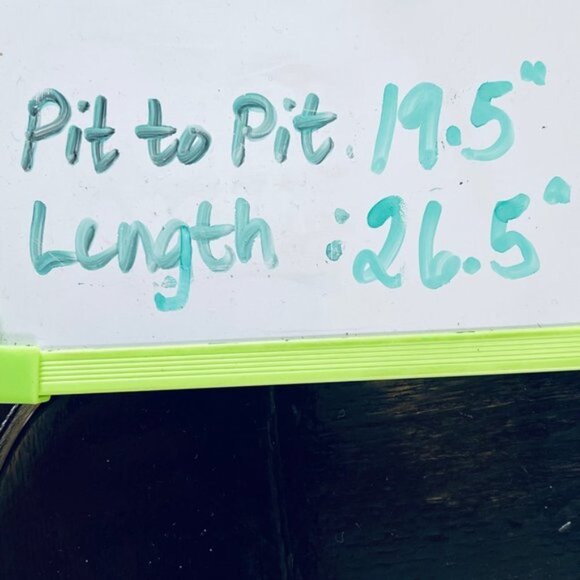 Pit to Pit. 19.5"
Length : 26.5"